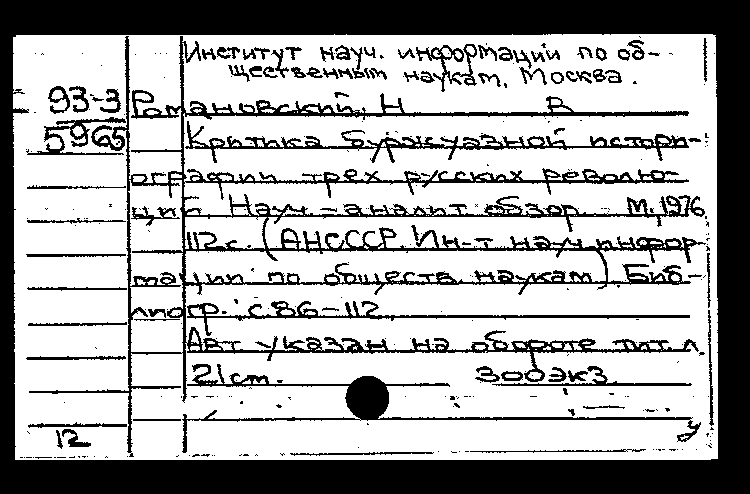 Институт науч. информации по об-
щественным наукам, Москва.
93-3 Романовский, Н В
5965 Критика буржуазной истори-
ографии трех русских револю-
ций. Науч.-аналит обзор. - М., 1976
112 с. (АН СССР. Ин-т науч информ-
мации по обществ наукам). Биб-
лиогр.: с. 86-112.
Авт указан на обороте тит. л.
21 см. 300 экз.
12 у